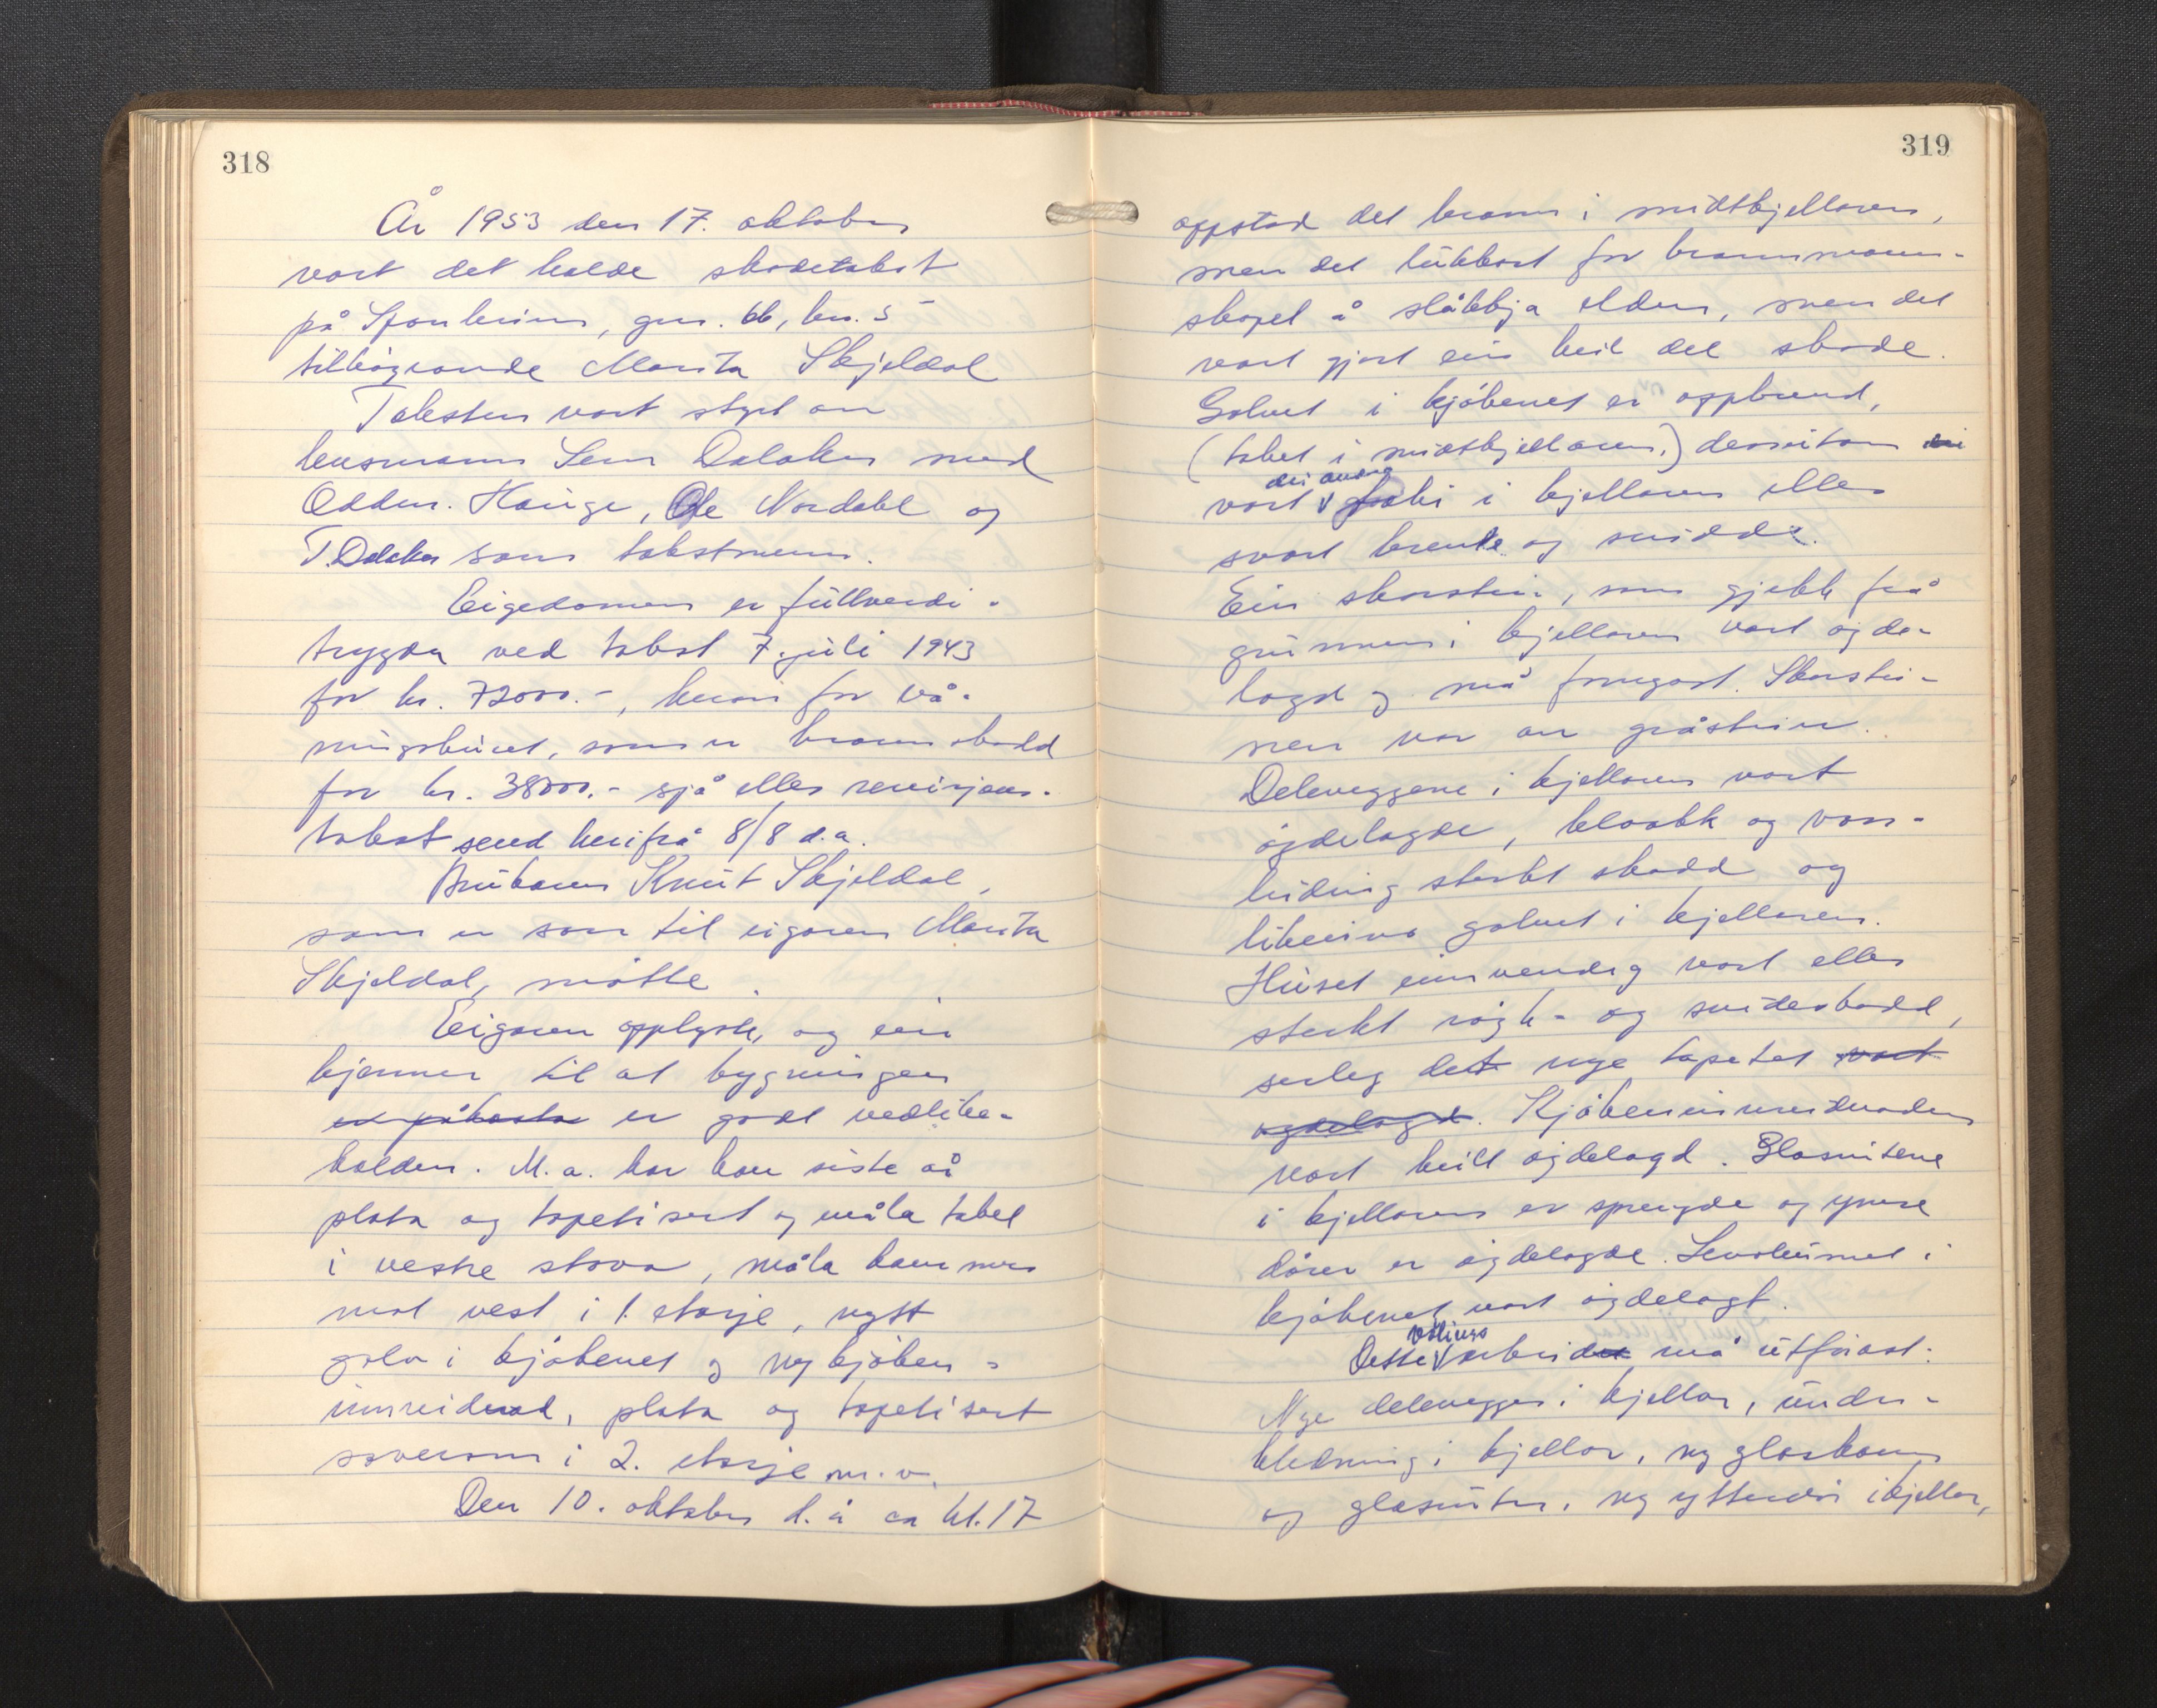 318
År 1953 den 17. oktober
vart det halde skadetakst
på Sponheim, gnr. 66, bnr. 5
tilhøyrande Marita Skjeldal
Taksten vart styrt av
lensmann Dalaker med
Oddm. Hauge, Ole Nordahl og
T. Dalaker som takstmenn.
Eigedomen er fullverdi-
trygda ved takst 7. juli 1943
for kr. 72000.-, herav for vå-
ningshuset, som er brannskadd
for kr. 38000.- sjå elles revisjons-
takst send herifrå 8/8 d.a.
Brukaren Knut Skjeldal,
som er son til eigaren Marita
Skjeldal, møtte.
Eigaren opplyste, og ein
kjenner til at bygningen
er påkosta er godt vedlike-
halden. M.a. har han siste år
plata og tapetisert og måla taket
i vestre stova, måla kammers
mot vest i 1. etasje, nytt
golv i kjøkenet og ny kjøken-
innreidnad, plata og tapetisert
soverom i 2. etasje m.v.
Den 10. oktober d.å ca kl. 17
319
oppstod det brann i midtkjellaren,
men det lukkast for brannmann-
skapet å sløkkja elden, men det
vart gjort ein heil del skade.
Golvet i kjøkenet er oppbrend,
(taket i midtkjellaren,) dessutan dei
dei andre
vart taki i kjellaren elles
svart brende og svidde.
Ein skorstein, som gjekk frå
grunnen i kjellaren vart øyde-
lagd og må fornyast. Skorstei-
nen var av gråstein.
Deleveggene i kjellaren vart
øydelagde, bloakk og vass-
leidning sterkt skadd og
likeeins golvet i kjellaren.
Huset innvendig vart elles
sterkt røyk- og svideskadd,
serleg det nye tapetet vart
øydelagd. Kjøkeninnreidnaden
vart heilt øydelagd. Glasrutene
i kjellaren er sprengde og ymse
dører er øydelagde. Levolumet i
kjøkenet vart øydelagt.
Dette arbeidet må utførast:
Nye delevegger i kjellar, under-
kledning i kjellar, ny glaskarm
og glasruter, ny ytterdør i kjellar,